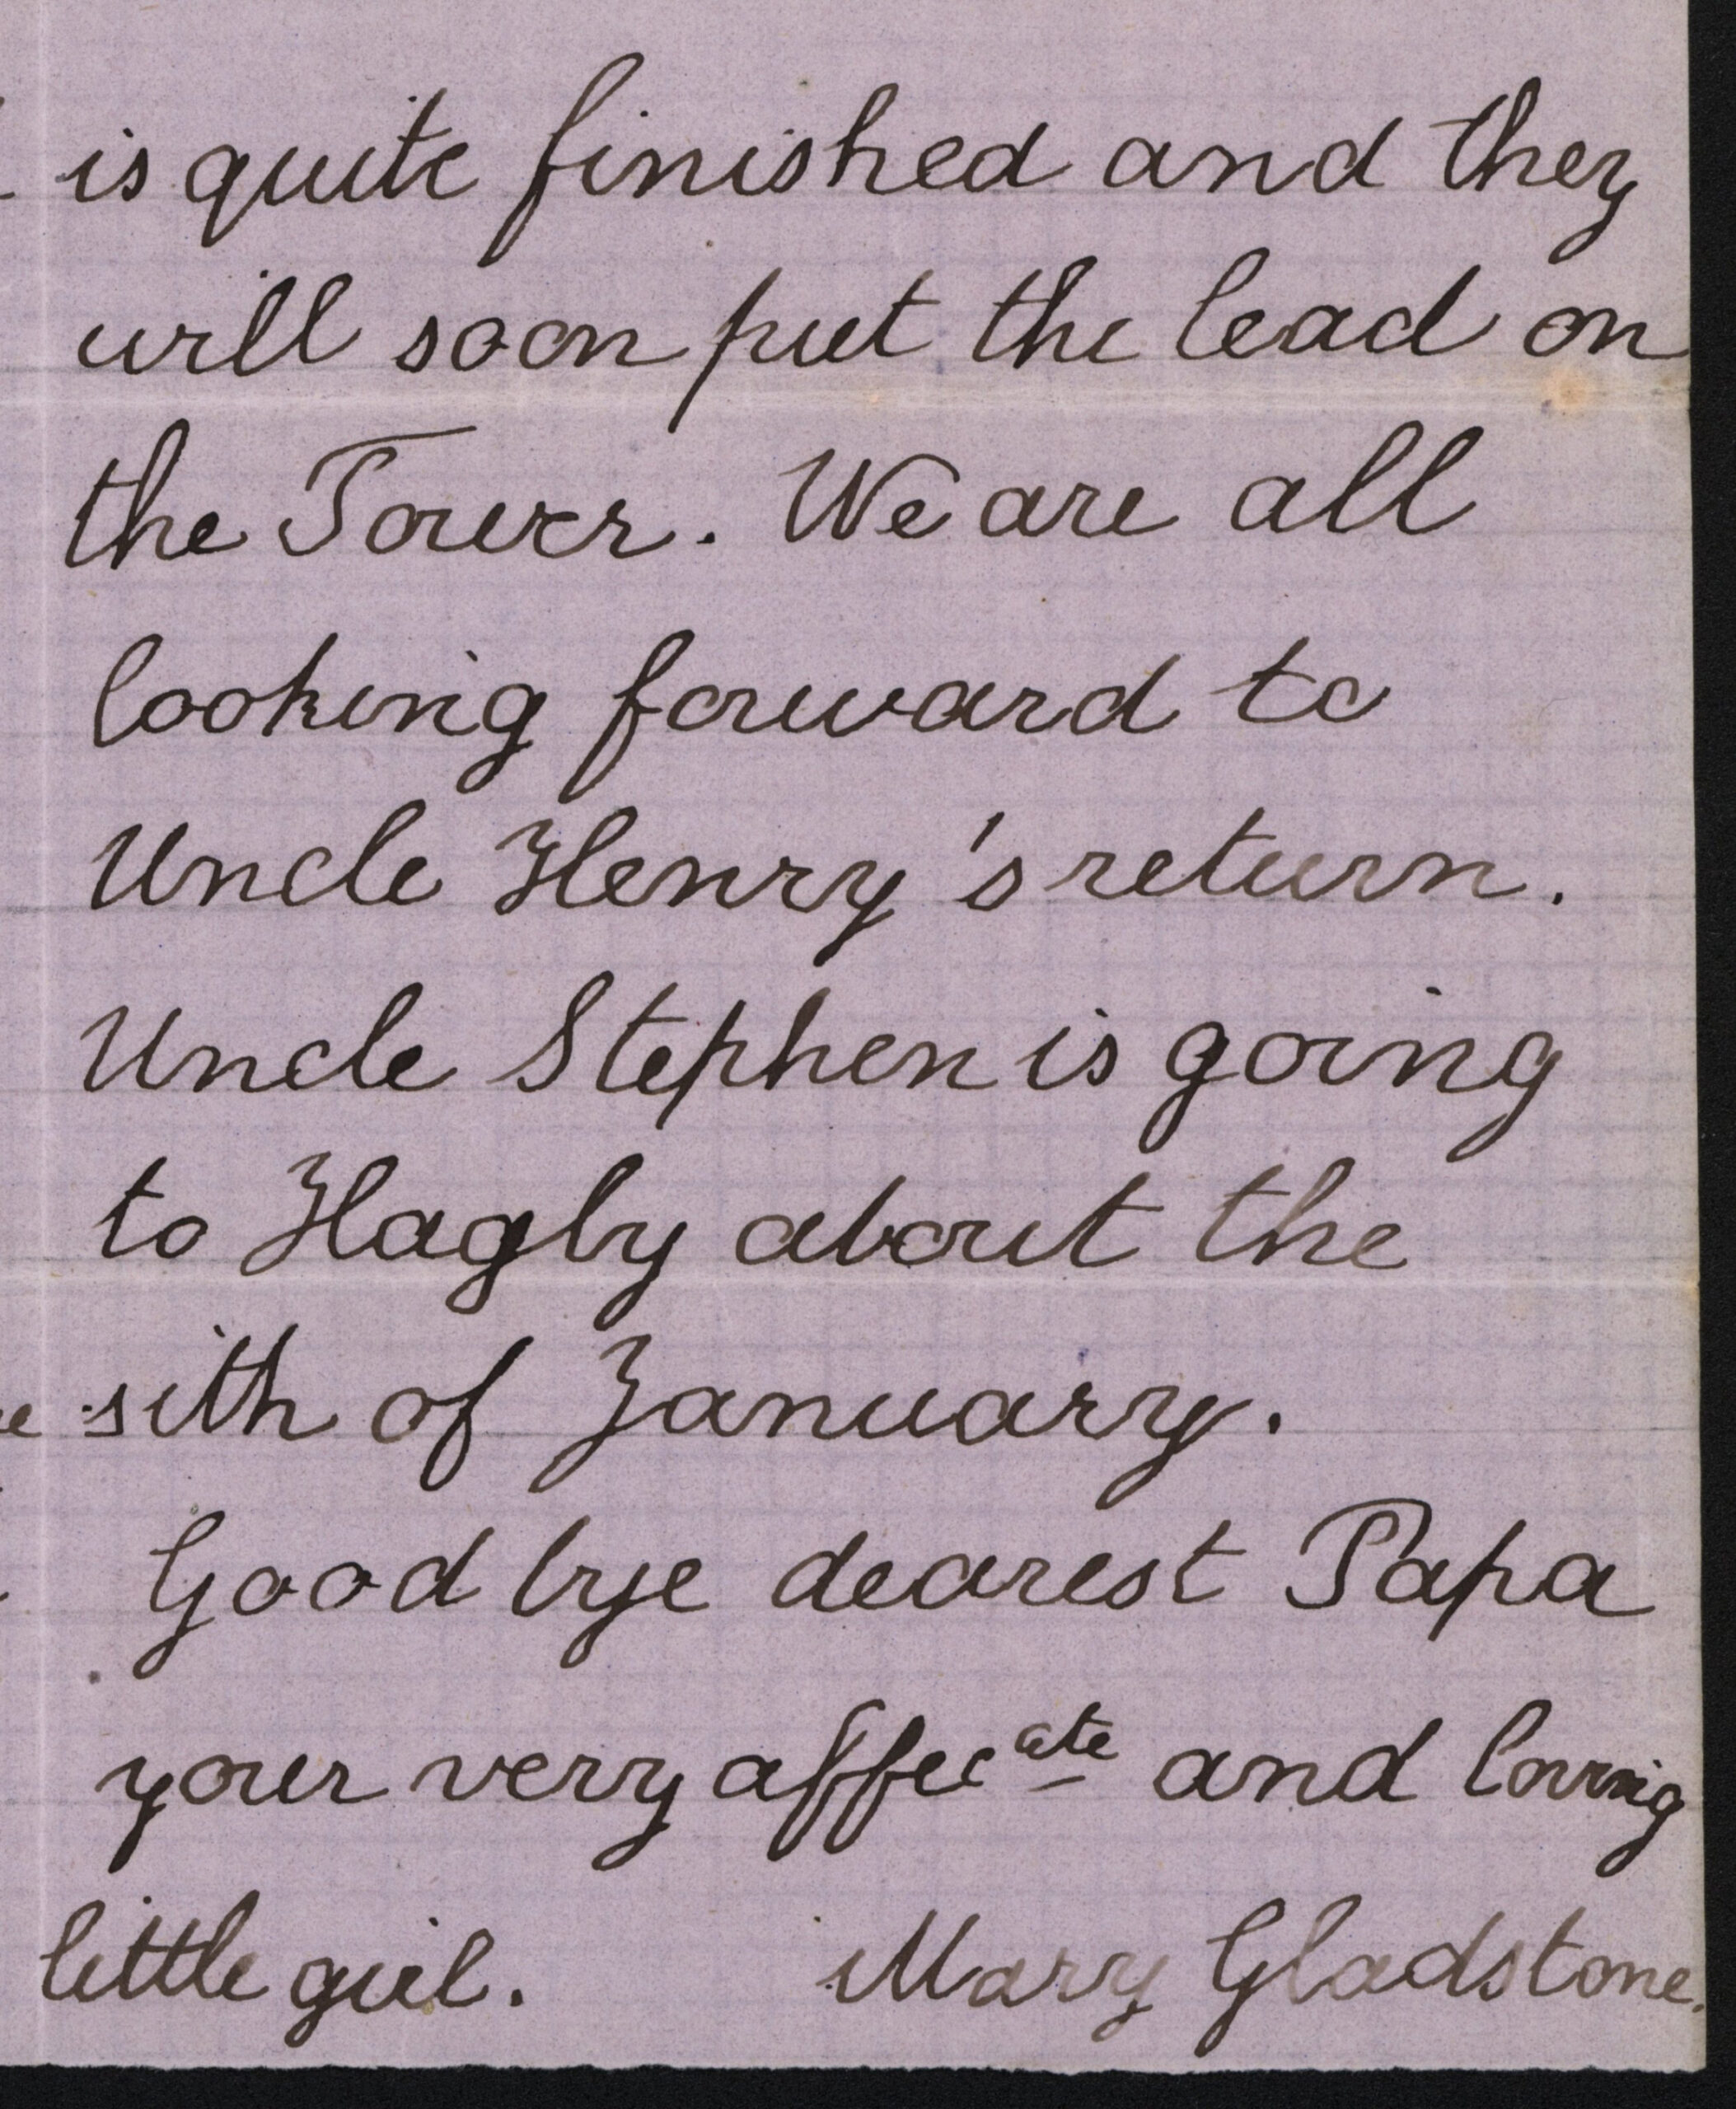 is quite finished and they
will soon put the lead on
the Tower. We are all
looking forward to
Uncle Henry's return.
Uncle Stephen is going
to Hagly about the
sith of January.
Good bye dearest Papa
your very affecate and loving
little girl. Mary Gladstone.